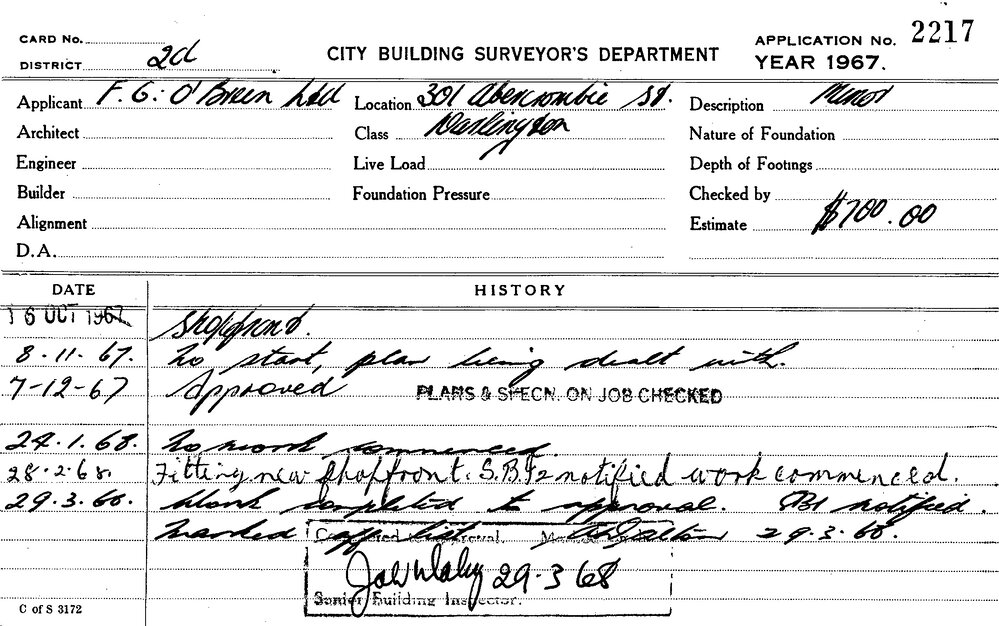 CARD No.
DISTRICT 2d
CITY BUILDING SURVEYOR'S DEPARTMENT
APPLICATION No. 2217
YEAR 1967.
Applicant F. G. O'Brien Ltd Location 301 Abercrombie St. Description Minor
Architect Class Darlington Nature of Foundation
Engineer Live Load Depth of Footings
Builder Foundation Pressure Checked by
Alignment Estimate $700.00
D.A.
DATE HISTORY
16 OCT 1967 Shopfront.
8.11.67. No start, plan being dealt with.
7-12-67 Approved PLANS & SPECN. ON JOB CHECKED
24.1.68. No work commenced.
28.2.68. Fitting new shopfront. notified work commenced.
29.3.68. Work completed to approval. notified.
Marked off list 29.3.68.
Completed to approval.
29-3 68
Senior Building Inspector.
C of S 3172